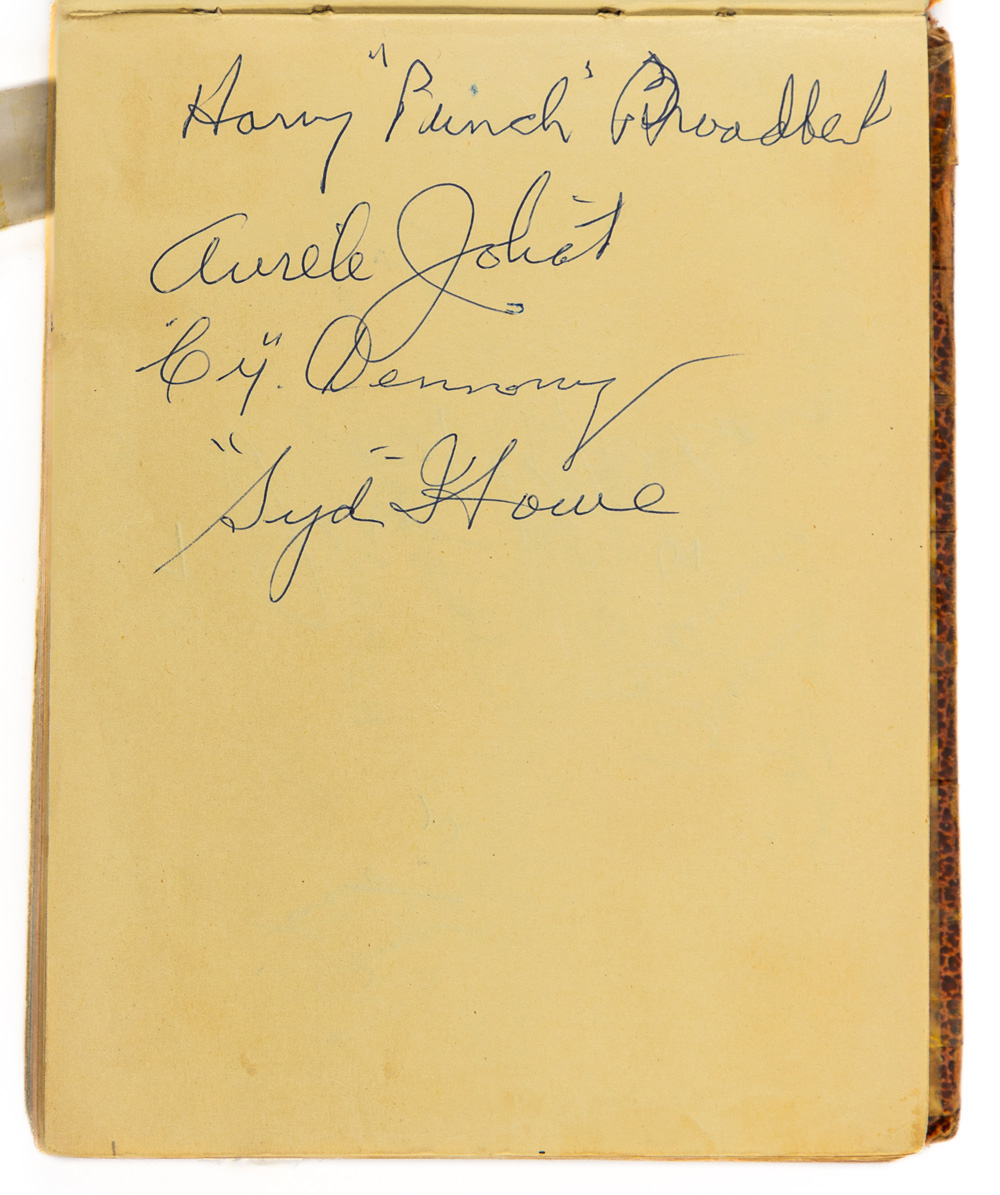 Harry "Punch" Broadbent
Aurèle Joliat
"Cy". Denneny
"Syd" Howe